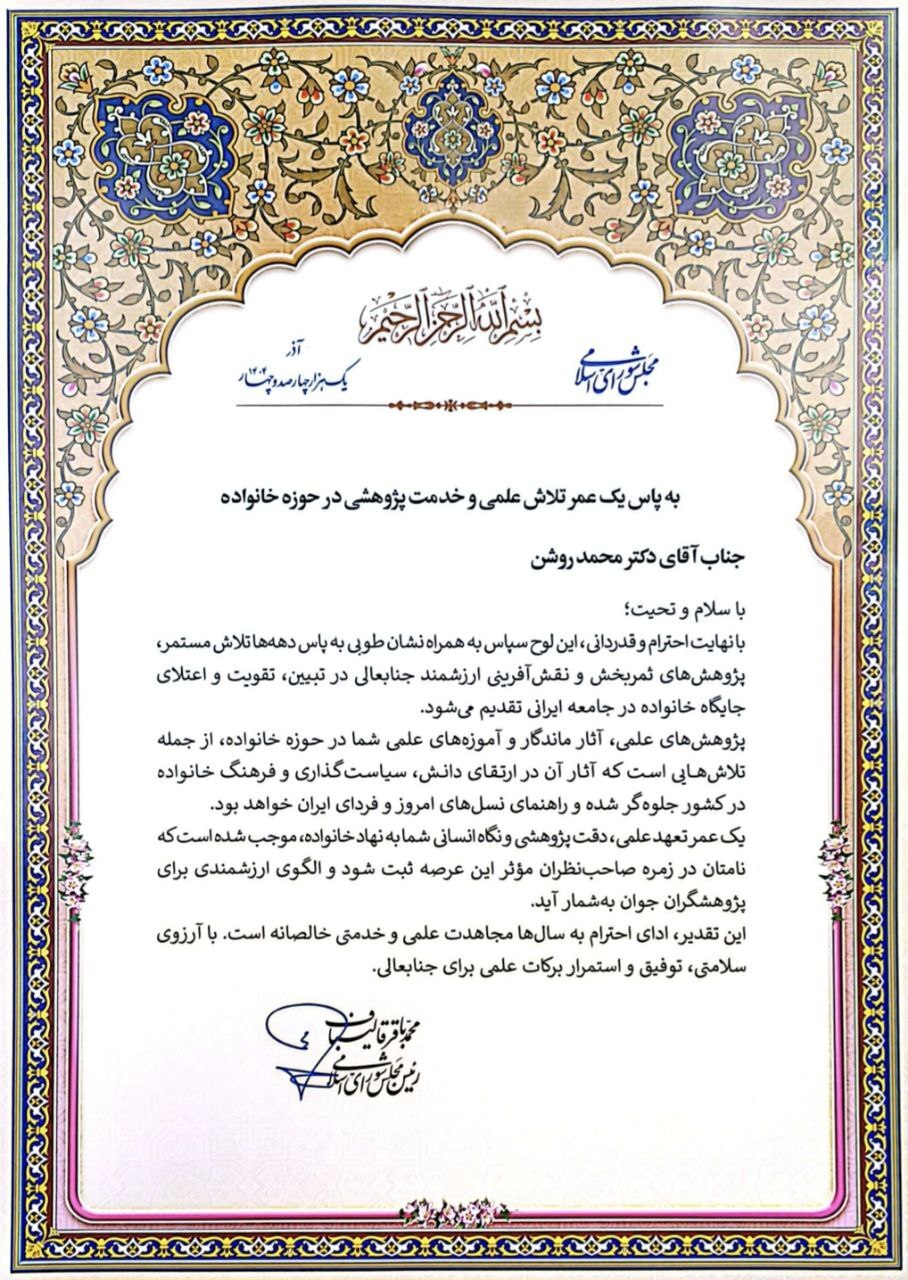 بسم الله الرحمن الرحیم
مجلس شورای اسلامی
آذر
۱۴۰۴
یک هزار چهارصد و چهار
به پاس یک عمر تلاش علمی و خدمت پژوهشی در حوزه خانواده
جناب آقای دکتر محمد روشن
با سلام و تحیت؛
با نهایت احترام و قدردانی، این لوح سپاس به همراه نشان طوبی به پاس دهه‌ها تلاش مستمر،
پژوهش‌های ثمربخش و نقش‌آفرینی ارزشمند جنابعالی در تبیین، تقویت و اعتلای
جایگاه خانواده در جامعه ایرانی تقدیم می‌شود.
پژوهش‌های علمی، آثار ماندگار و آموزه‌های علمی شما در حوزه خانواده، از جمله
تلاش‌هایی است که آثار آن در ارتقای دانش، سیاست‌گذاری و فرهنگ خانواده
در کشور جلوه‌گر شده و راهنمای نسل‌های امروز و فردای ایران خواهد بود.
یک عمر تعهد علمی، دقت پژوهشی و نگاه انسانی شما به نهاد خانواده، موجب شده است که
نامتان در زمره صاحب‌نظران مؤثر این عرصه ثبت شود و الگوی ارزشمندی برای
پژوهشگران جوان به‌شمار آید.
این تقدیر، ادای احترام به سال‌ها مجاهدت علمی و خدمتی خالصانه است. با آرزوی
سلامتی، توفیق و استمرار برکات علمی برای جنابعالی.
محمدباقر قالیباف
رئیس مجلس شورای اسلامی